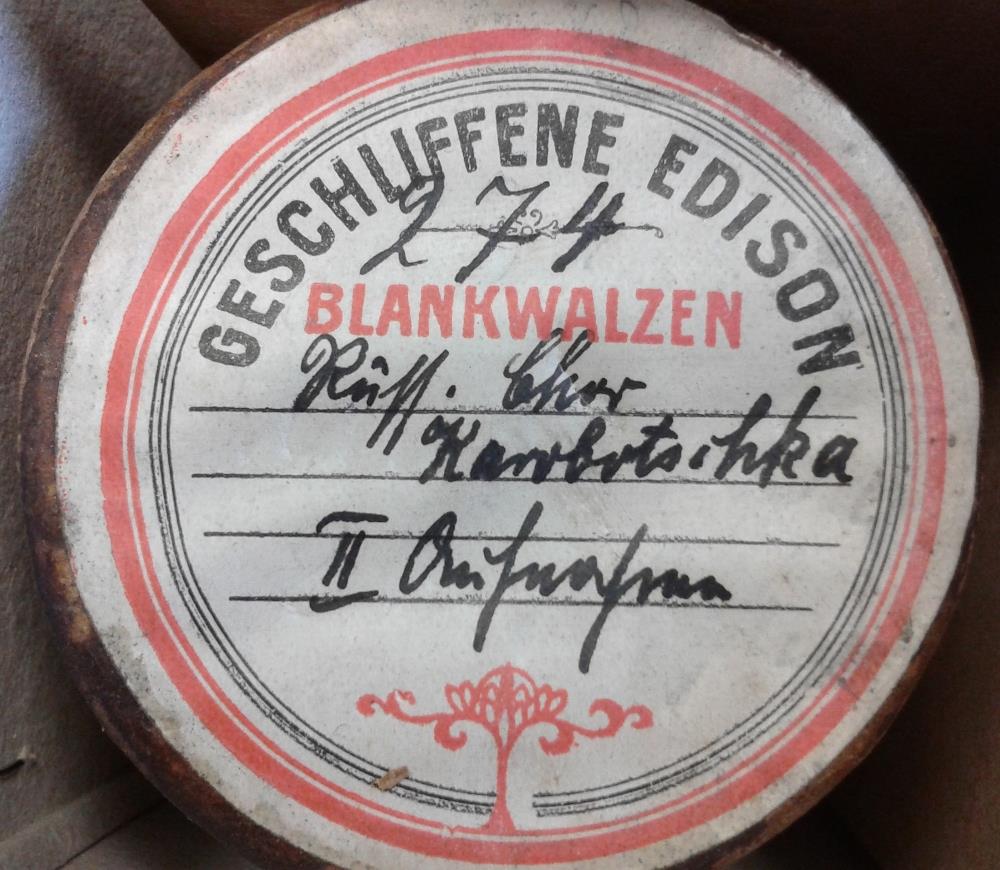 GESCHLIFFENE EDISON
274
BLANKWALZEN
Russ. Chor
Karobotschka
II Aufnahme